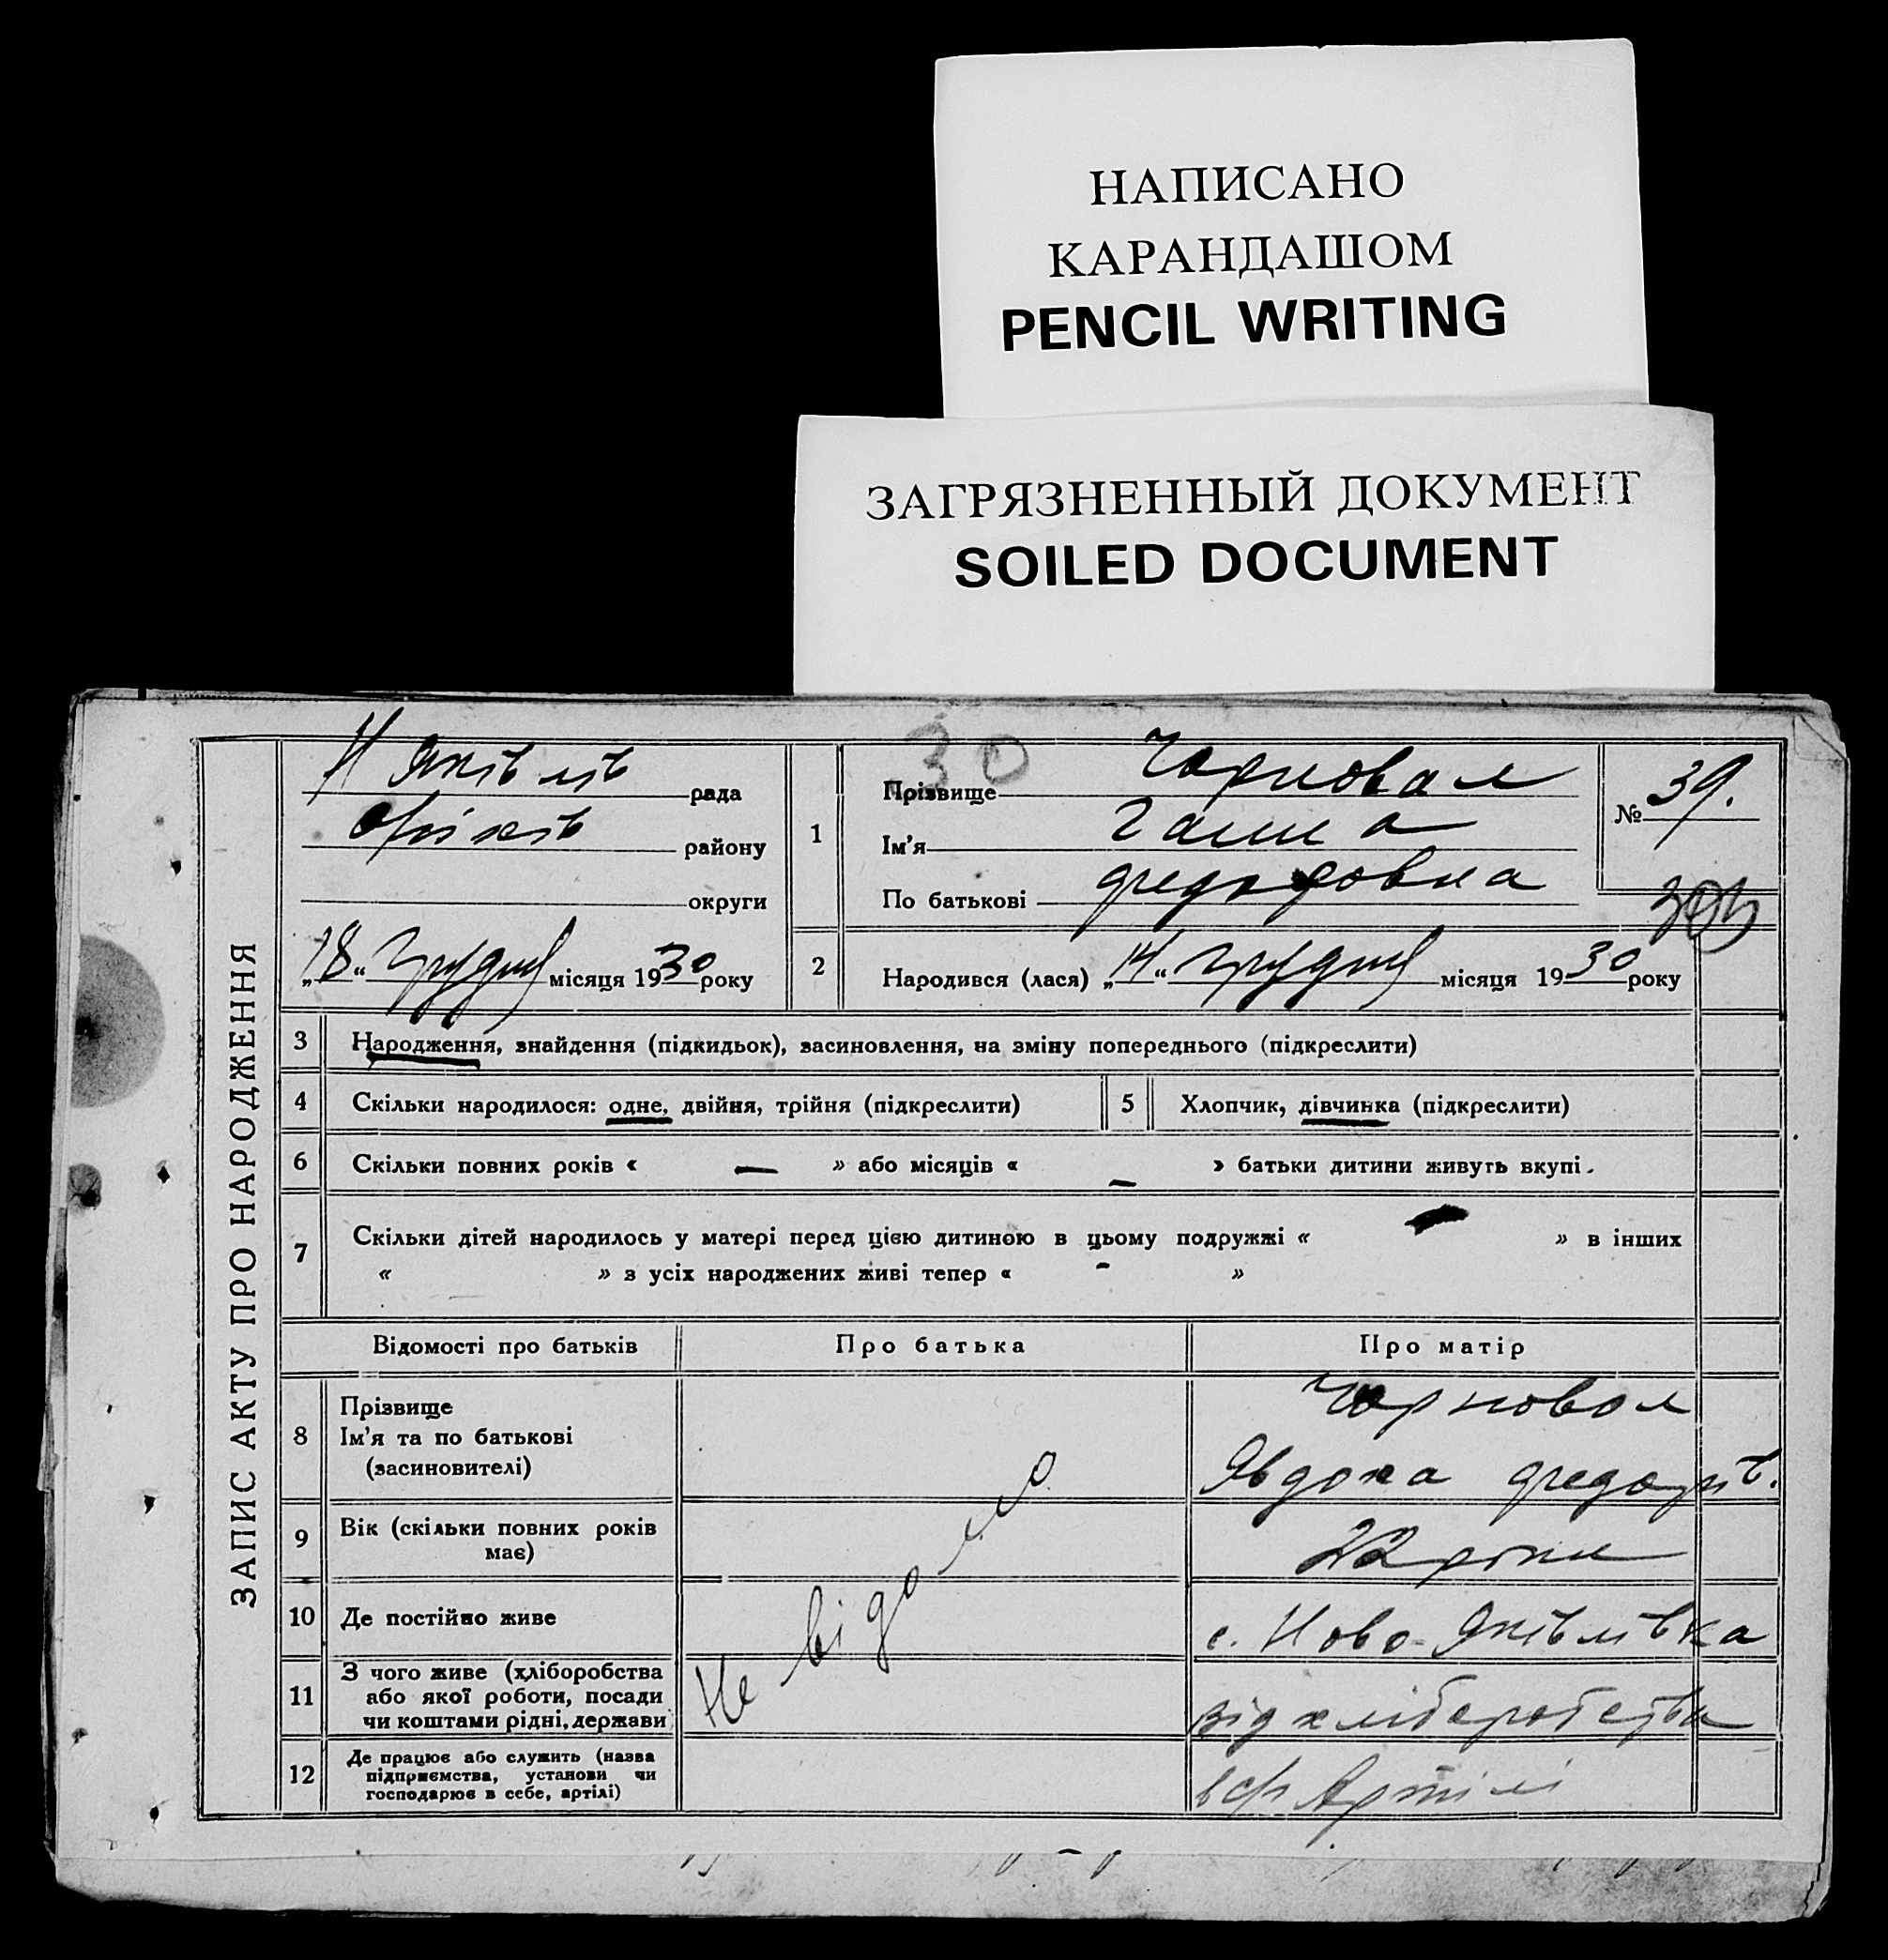 НАПИСАНО
КАРАНДАШОМ
PENCIL WRITING
ЗАГРЯЗНЕННЫЙ ДОКУМЕНТ
SOILED DOCUMENT
ЗАПИС АКТУ ПРО НАРОДЖЕННЯ
Н Яківлів рада
Оріхів району
округи
„18“ Грудня місяця 1930 року
30
1
Прізвище Чорновол
Ім'я Ганна
По батькові Федоровна
№ 39.
2 Народився (лася) „14“ Грудня місяця 1930 року
3 Народження, знайдення (підкидьок), засиновлення, на зміну попереднього (підкреслити)
4 Скільки народилося: одне, двійня, трійня (підкреслити) 5 Хлопчик, дівчинка (підкреслити)
6 Скільки повних років « — » або місяців « — » батьки дитини живуть вкупі.
7 Скільки дітей народилось у матері перед цією дитиною в цьому подружжі « — » в інших
« » з усіх народжених живі тепер « - »
Відомості про батьків Про батька Про матір
8 Прізвище
Ім'я та по батькові
(засиновителі)
Чорновол
Явдоха Федорів.
9 Вік (скільки повних років
має)
22 роки
10 Де постійно живе
с. Ново-Яківлівка
11 З чого живе (хліборобства
або якої роботи, посади
чи коштами рідні, держави
від хліборобства
12 Де працює або служить (назва
підприємства, установи чи
господарює в себе, артілі)
в с/г Артілі
Не відомо